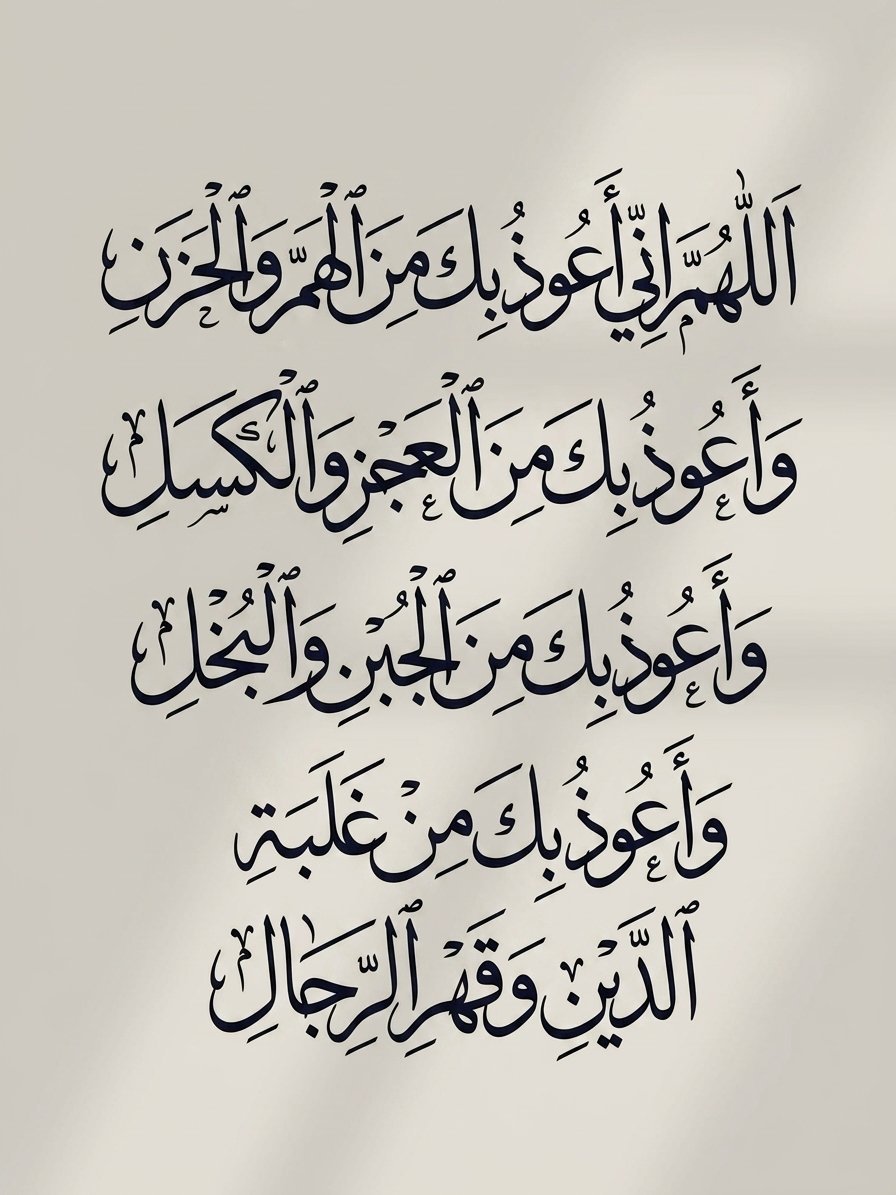 اَللّٰهُمَّ إِنِّي أَعُوذُ بِكَ مِنَ ٱلْهَمِّ وَٱلْحَزَنِ
وَأَعُوذُ بِكَ مِنَ ٱلْعَجْزِ وَٱلْكَسَلِ
وَأَعُوذُ بِكَ مِنَ ٱلْجُبْنِ وَٱلْبُخْلِ
وَأَعُوذُ بِكَ مِنْ غَلَبَةِ
ٱلدَّيْنِ وَقَهْرِ ٱلرِّجَالِ